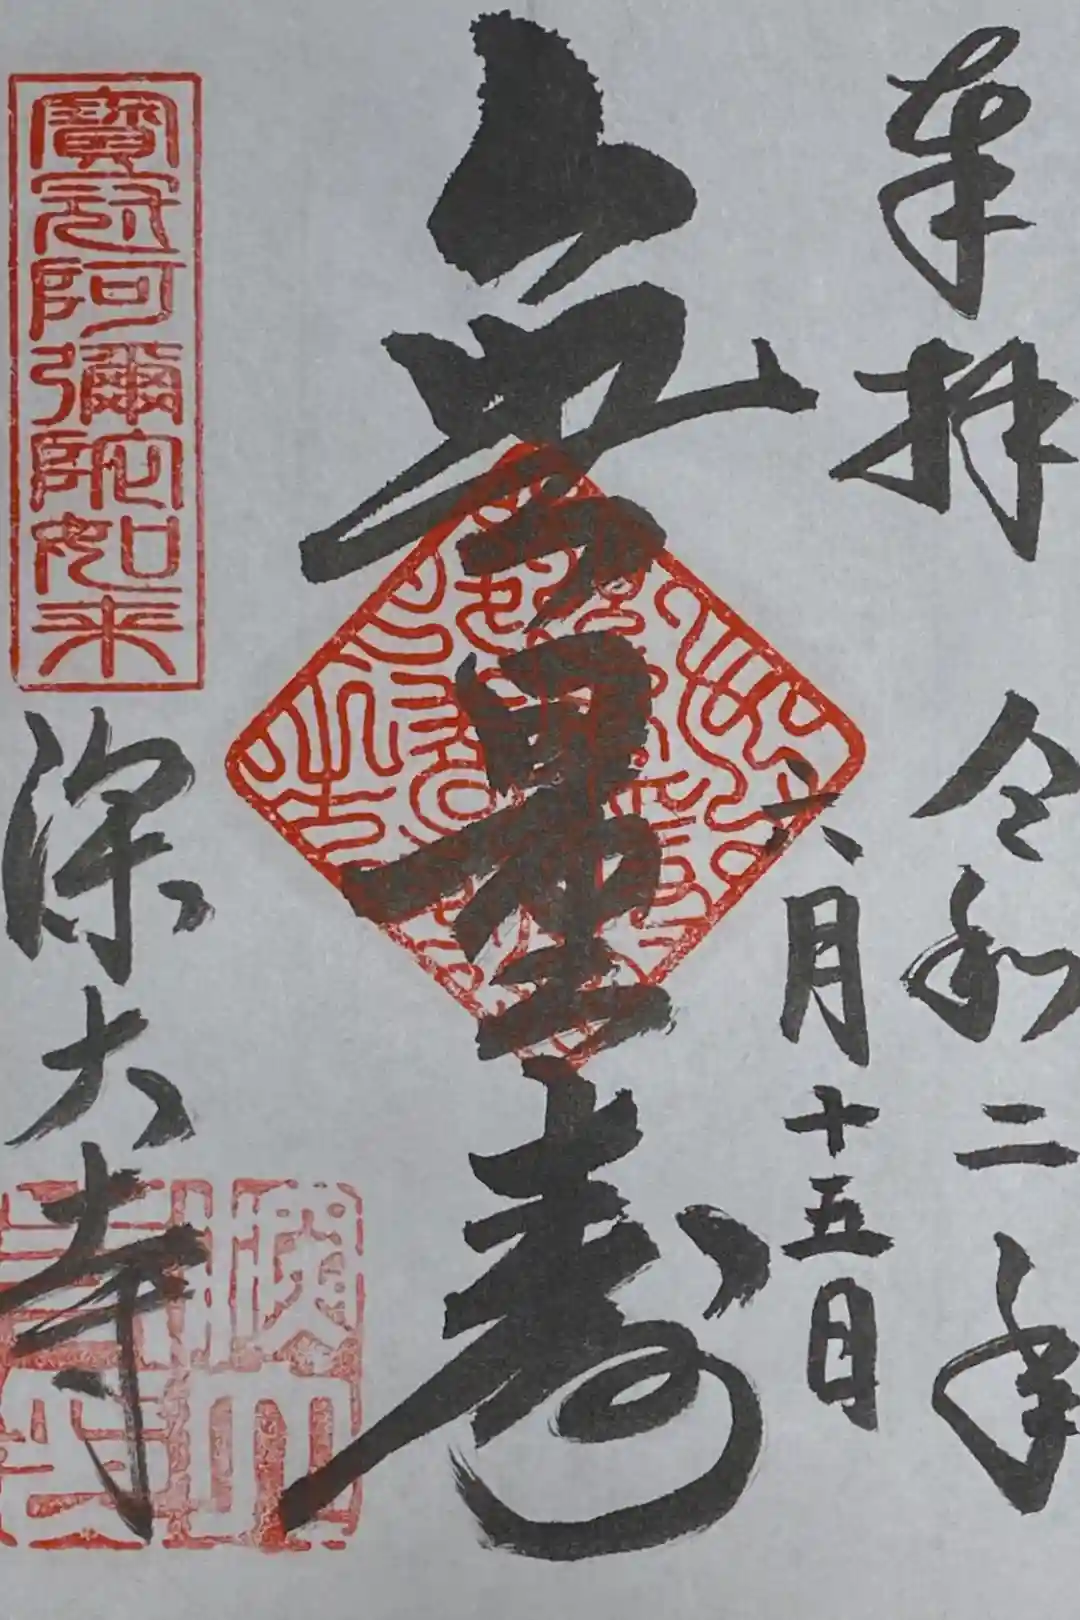 奉拝
令和二年
六月十五日
無量壽
寶冠阿彌陀如来
深大寺